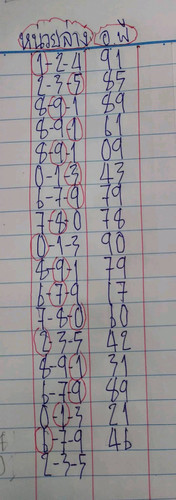 หน่วยล่าง อ พี
1-2-4 91
2-3-5 85
8-9-1 89
8-9-1 61
8-9-1 09
0-1-3 43
6-7-9 79
7-8-0 78
0-1-3 90
8-9-1 79
6-7-9 67
7-8-0 60
2-3-5 42
8-9-1 31
6-7-9 89
0-1-3 21
6-7-9 46
2-3-5